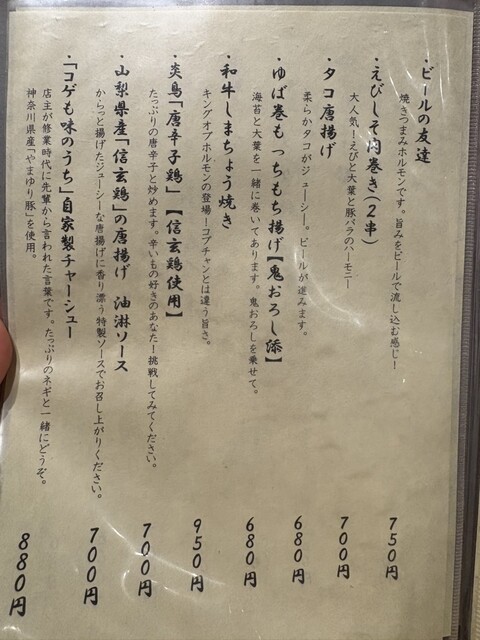 ・ビールの友達
焼きつまみホルモンです。旨みをビールで流し込む感じ!
750円
・えびしそ肉巻き(2串)
大人気!えびと大葉と豚バラのハーモニー
700円
・タコ唐揚げ
柔らかタコがジューシー。ビールが進みます。
680円
・ゆば巻もっちもち揚げ【鬼おろし添】
海苔と大葉を一緒に巻いてあります。鬼おろしを乗せて。
680円
・和牛しまちょう焼き
キングオブホルモンの登場!コプチャンとは違う旨さ。
950円
・炎鳥「唐辛子鶏」【信玄鶏使用】
たっぷりの唐辛子と炒めます。辛いもの好きのあなた!挑戦してみてください。
700円
・山梨県産「信玄鶏」の唐揚げ 油淋ソース
からっと揚げたジューシーな唐揚げに香り漂う特製ソースでお召し上がりください。
700円
・「コゲも味のうち」自家製チャーシュー
店主が修業時代に先輩から言われた言葉です。たっぷりのネギと一緒にどうぞ。
神奈川県産「やまゆり豚」を使用。
880円